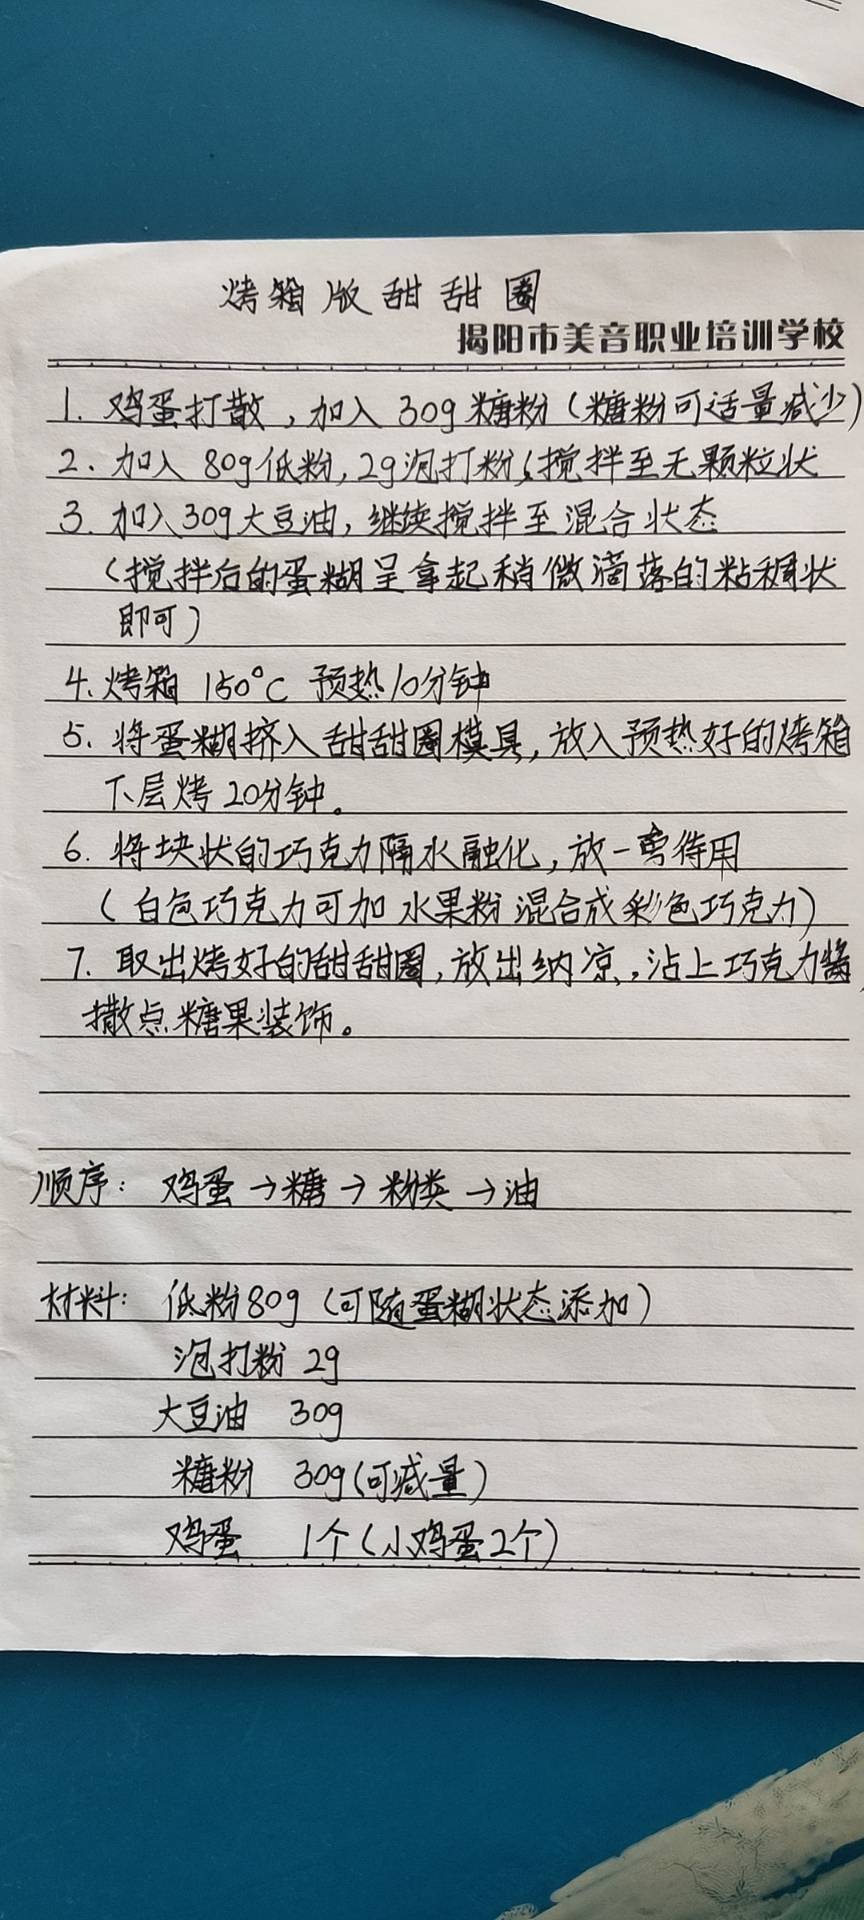 烤箱版甜甜圈
揭阳市美音职业培训学校
1. 鸡蛋打散，加入 30g 糖粉（糖粉可适量减少）
2、加入 80g低粉，2g泡打粉，搅拌至无颗粒状
3. 加入30g大豆油，继续搅拌至混合状态
（搅拌后的蛋糊呈拿起稍微滴落的粘稠状
即可）
4、烤箱 150°C 预热10分钟
5、将蛋糊挤入甜甜圈模具，放入预热好的烤箱
下层烤 20分钟。
6. 将块状的巧克力隔水融化，放一旁待用
（白色巧克力可加水果粉混合成彩色巧克力）
7. 取出烤好的甜甜圈，放出纳凉，沾上巧克力酱，
撒点糖果装饰。
顺序：鸡蛋→糖→粉类→油
材料：低粉80g（可随蛋糊状态添加）
泡打粉 2g
大豆油 30g
糖粉 30g（可减量）
鸡蛋 1个（小鸡蛋2个）